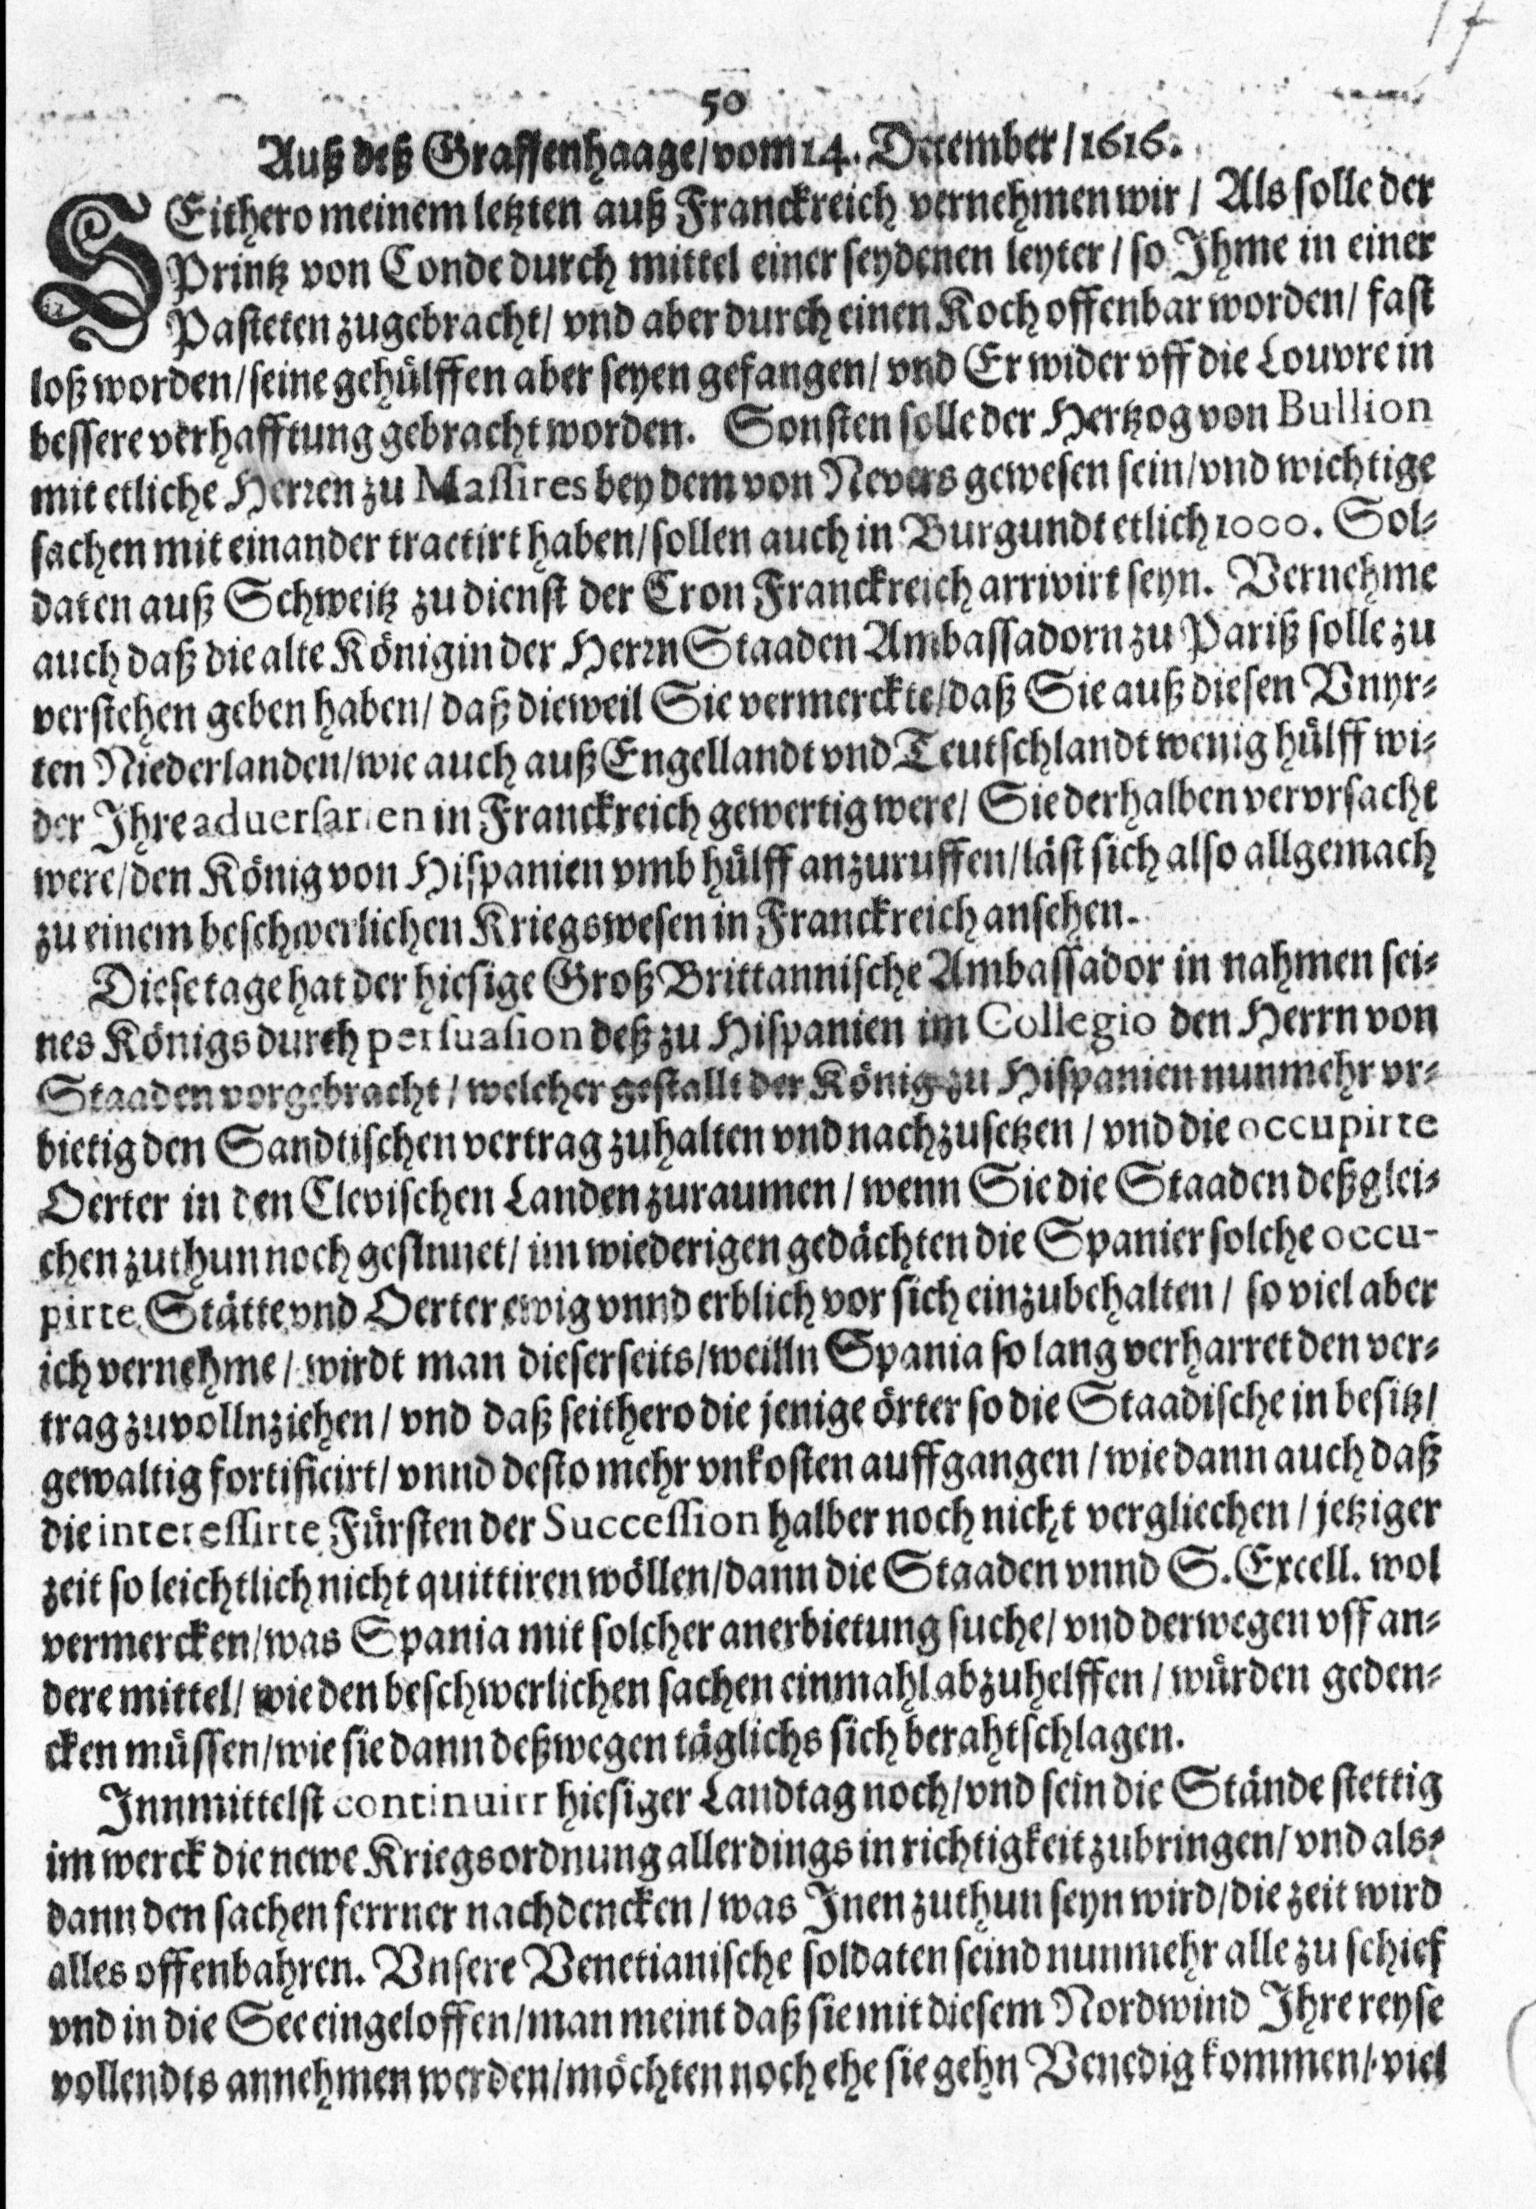 17
50
Auß deß Graffenhaage/ vom 14. December / 1616.
SEithero meinem letzten auß Franckreich vernehmen wir / Als solle der
Printz von Conde durch mittel einer seydenen leyter / so Ihme in einer
Pasteten zugebracht/ vnd aber durch einen Koch offenbar worden/ fast
loß worden/ seine gehülffen aber seyen gefangen/ vnd Er wider vff die Louvre in
bessere verhafftung gebracht worden. Sonsten solle der Hertzog von Bullion
mit etliche Herren zu Massires bey dem von Nevers gewesen sein/ vnd wichtige
sachen mit einander tractirt haben/ sollen auch in Burgundt etlich 1000. Sol-
daten auß Schweitz zu dienst der Cron Franckreich arrivirt seyn. Vernehme
auch daß die alte Königin der Herrn Staaden Ambassadorn zu Pariß solle zu
verstehen geben haben/ daß dieweil Sie vermerckte/ daß Sie auß diesen Vnyr-
ten Niederlanden/ wie auch auß Engellandt vnd Teutschlandt wenig hülff wi-
der Ihre aduersarien in Franckreich gewertig were/ Sie derhalben vervrsacht
were/ den König von Hispanien vmb hülff anzuruffen/ läst sich also allgemach
zu einem beschwerlichen Kriegswesen in Franckreich ansehen.
Diese tage hat der hiesige Groß Brittannische Ambassador in nahmen sei-
nes Königs durch persuasion deß zu Hispanien im Collegio den Herrn von
Staaden vorgebracht / welcher gestallt der König zu Hispanien nunmehr vr-
bietig den Sandtischen vertrag zuhalten vnd nachzusetzen / vnd die occupirte
Oerter in den Clevischen Landen zuraumen / wenn Sie die Staaden deßglei-
chen zuthun noch gesinnet/ im wiederigen gedächten die Spanier solche occu-
pirte Stätte vnd Oerter ewig vnnd erblich vor sich einzubehalten / so viel aber
ich vernehme / wirdt man dieserseits/ weilln Spania so lang verharret den ver-
trag zuvollnziehen/ vnd daß seithero die jenige örter so die Staadische in besitz/
gewaltig fortificirt/ vnnd desto mehr vnkosten auffgangen / wie dann auch daß
die interessirte Fürsten der Succession halber noch nicht vergliechen / jetziger
zeit so leichtlich nicht quittiren wöllen/ dann die Staaden vnnd S. Excell. wol
vermercken/ was Spania mit solcher anerbietung suche/ vnd derwegen vff an-
dere mittel/ wie den beschwerlichen sachen einmahl abzuhelffen / würden geden-
cken müssen/ wie sie dann deßwegen täglichs sich berahtschlagen.
Innmittelst continuirt hiesiger Landtag noch/ vnd sein die Stände stettig
im werck die newe Kriegsordnung allerdings in richtigkeit zubringen/ vnd als-
dann den sachen ferrner nachdencken / was Inen zuthun seyn wird/ die zeit wird
alles offenbahren. Vnsere Venetianische soldaten seind nunmehr alle zu schief
vnd in die See eingeloffen/ man meint daß sie mit diesem Nordwind Ihre reyse
vollendts annehmen werden/ möchten noch ehe sie gehn Venedig kommen/ viel